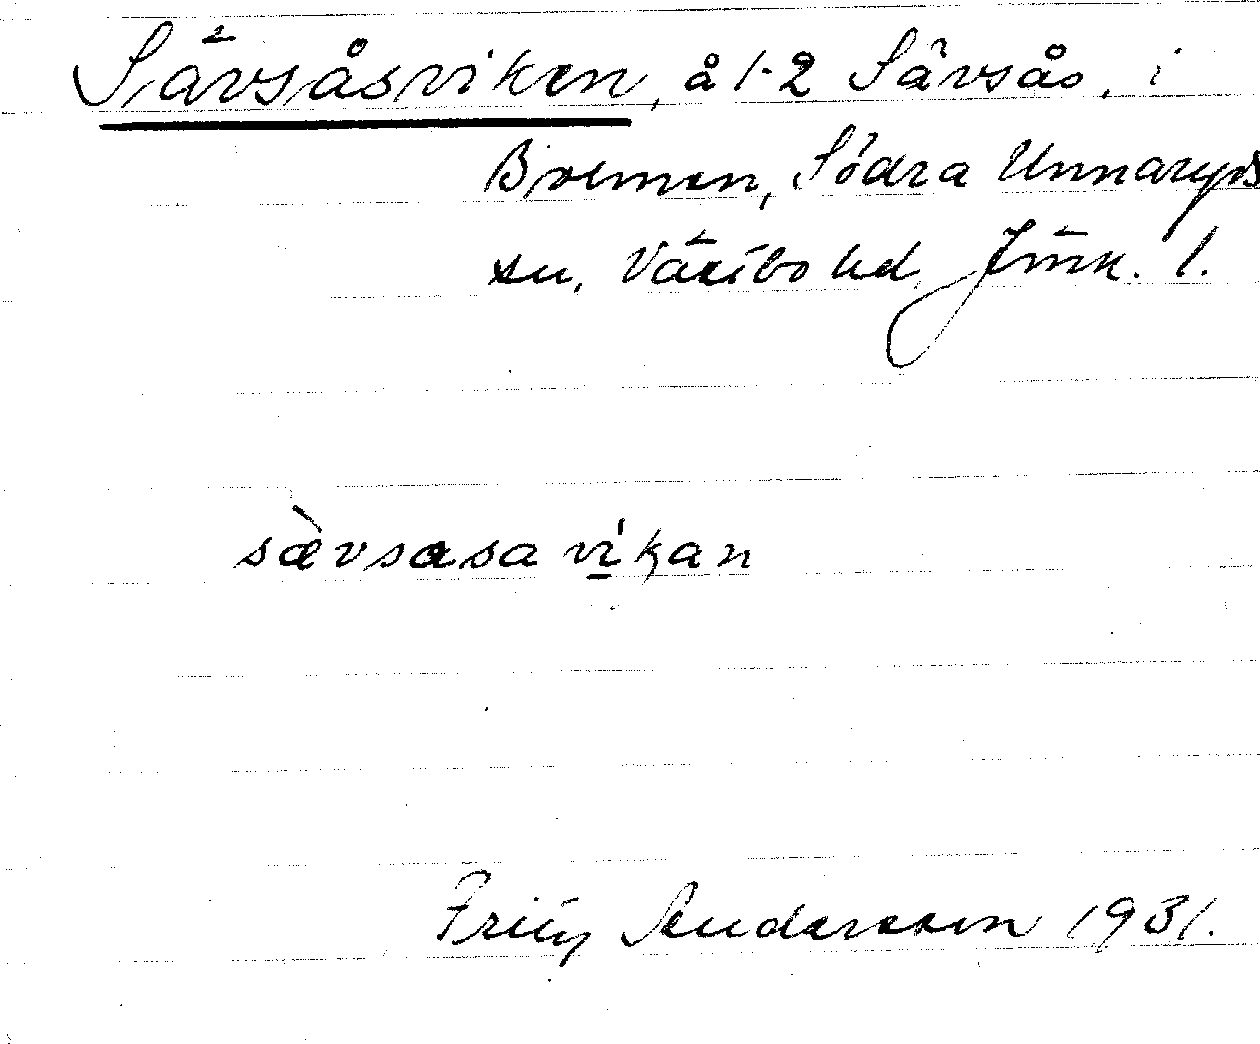 Sävsåsviken, å 1-2 Sävsås, i
Bolmen, Södra Unnaryds
sn, Västbo hd, Jönk. l.
sævsasa vikan
Fritz Andersson 1931.